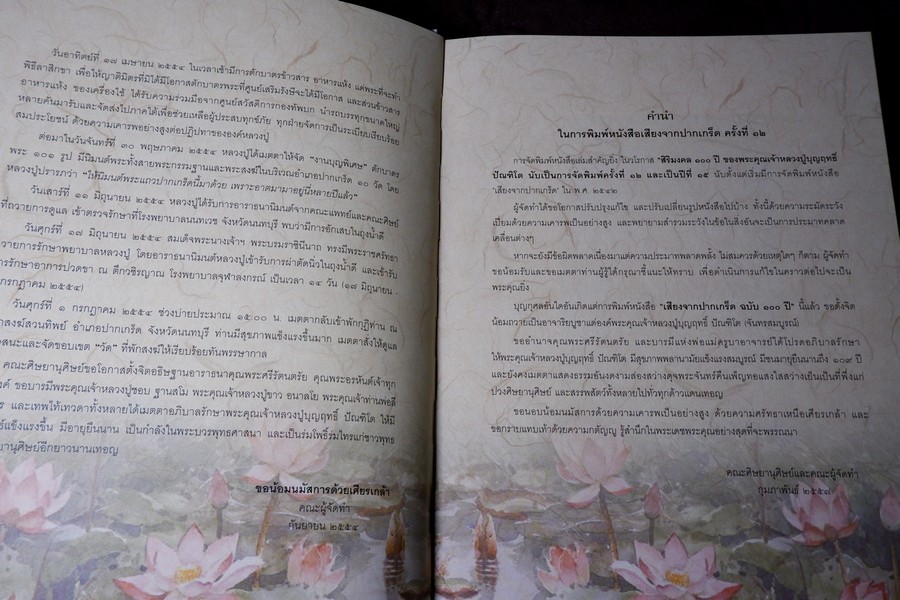 วันอาทิตย์ที่ ๑๗ เมษายน ๒๕๕๔ ในเวลาเช้ามีการตักบาตรข้าวสาร อาหารแห้ง แด่พระที่จะทำ
พิธีลาสิกขา เพื่อให้ญาติมิตรที่มิได้มีโอกาสตักบาตรพระที่ศูนย์เสริมรังษีจะได้มีโอกาส และส่วนข้าวสาร
อาหารแห้ง ของเครื่องใช้ ได้รับความร่วมมือจากศูนย์สวัสดิการกองทัพบก นำรถบรรทุกขนาดใหญ่
หลายคันมารับและจัดส่งไปภาคใต้เพื่อช่วยเหลือผู้ประสบทุกข์ภัย ทุกฝ่ายจัดการเป็นระเบียบเรียบร้อย
สมประโยชน์ ด้วยความเคารพอย่างสูงต่อปฏิปทาขององค์หลวงปู่
ต่อมาในวันจันทร์ที่ ๓๐ พฤษภาคม ๒๕๕๔ หลวงปู่ได้เมตตาให้จัด "งานบุญพิเศษ" ตักบาตร
พระ ๑๐๑ รูป มีนิมนต์พระทั้งสายพระกรรมฐานและพระสงฆ์ในบริเวณอำเภอปากเกร็ด ๑๐ วัด โดย
หลวงปู่ปรารภว่า "ให้นิมนต์พระแถวปากเกร็ดนี้มาด้วย เพราะอาตมามาอยู่นี่หลายปีแล้ว"
วันเสาร์ที่ ๑๑ มิถุนายน ๒๕๕๔ หลวงปู่ได้รับการอาราธนานิมนต์จากคณะแพทย์และคณะศิษย์
ที่ถวายการดูแล เข้าตรวจรักษาที่โรงพยาบาลนนทเวช จังหวัดนนทบุรี พบว่ามีการอักเสบในถุงน้ำดี
วันศุกร์ที่ ๑๗ มิถุนายน ๒๕๕๔ สมเด็จพระนางเจ้าฯ พระบรมราชินีนาถ ทรงมีพระราชศรัทธา
วายการรักษาพยาบาลหลวงปู่ โดยอาราธนานิมนต์หลวงปู่เข้ารับการผ่าตัดนิ่วในถุงน้ำดี และเข้ารับ
การรักษาอาการปวดขา ณ ตึกวชิรญาณ โรงพยาบาลจุฬาลงกรณ์ เป็นเวลา ๑๔ วัน (๑๘ มิถุนายน -
กรกฎาคม ๒๕๕๔)
วันศุกร์ที่ ๑ กรกฎาคม ๒๕๕๔ ช่วงบ่ายประมาณ ๑๕.๐๐ น. เมตตากลับเข้าพักกุฏิท่าน ณ
กสงฆ์สวนทิพย์ อำเภอปากเกร็ด จังหวัดนนทบุรี ท่านมีสุขภาพแข็งแรงขึ้นมาก เมตตาสั่งให้ดูแล
สนะและจัดขอบเขต "วัด" ที่พักสงฆ์ให้เรียบร้อยทันพรรษากาล
คณะศิษยานุศิษย์ขอโอกาสตั้งจิตอธิษฐานอาราธนาคุณพระศรีรัตนตรัย คุณพระอรหันต์เจ้าทุก
งค์ ขอบารมีพระคุณเจ้าหลวงปู่ชอบ ฐานสโม พระคุณเจ้าหลวงปู่ขาว อนาลโย พระคุณเจ้าท่านพ่อลี
ร และเทพไท้เทวดาทั้งหลายได้เมตตาอภิบาลรักษาพระคุณเจ้าหลวงปู่บุญฤทธิ์ ปัณฑิโต ให้มี
ข์แข็งแรงขึ้น มีอายุยืนนาน เป็นกำลังในพระบวรพุทธศาสนา และเป็นร่มโพธิ์ร่มไทรแก่ชาวพุทธ
ยานุศิษย์อีกยาวนานเทอญ
ขอน้อมนมัสการด้วยเศียรเกล้า
คณะผู้จัดทำ
กันยายน ๒๕๕๔
คำนำ
ในการพิมพ์หนังสือเสียงจากปากเกร็ด ครั้งที่ ๑๒
การจัดพิมพ์หนังสือเล่มสำคัญยิ่ง ในวโรกาส "สิริมงคล ๑๐๐ ปี ของพระคุณเจ้าหลวงปู่บุญฤทธิ์
ปัณฑิโต นับเป็นการจัดพิมพ์ครั้งที่ ๑๒ และเป็นปีที่ ๑๕ นับตั้งแต่เริ่มมีการจัดพิมพ์หนังสือ
"เสียงจากปากเกร็ด" ใน พ.ศ. ๒๕๔๒
ผู้จัดทำได้ขอโอกาสปรับปรุงแก้ไข และปรับเปลี่ยนรูปหนังสือไปบ้าง ทั้งนี้ด้วยความระมัดระวัง
เปี่ยมด้วยความเคารพเป็นอย่างสูง และพยายามสำรวมระวังในข้อไม่สิ่งอันจะเป็นการประมาทคลาด
เคลื่อนต่างๆ
หากจะยังมีข้อผิดพลาดเนื่องมาแต่ความประมาทพลาดพลั้ง ไม่สมควรด้วยเหตุใดๆ ก็ตาม ผู้จัดทำ
ขอน้อมรับและขอเมตตาท่านผู้รู้ได้กรุณาชี้แนะให้ทราบ เพื่อดำเนินการแก้ไขในคราวต่อไปจะเป็น
พระคุณยิ่ง
บุญกุศลอันใดอันเกิดแต่การพิมพ์หนังสือ "เสียงจากปากเกร็ด ฉบับ ๑๐๐ ปี" นี้แล้ว ขอตั้งจิต
น้อมถวายเป็นอาจาริยบูชาแด่องค์พระคุณเจ้าหลวงปู่บุญฤทธิ์ ปัณฑิโต (จันทรสมบูรณ์)
ขออำนาจคุณพระศรีรัตนตรัย และบารมีแห่งพ่อแม่ครูบาอาจารย์ได้โปรดอภิบาลรักษา
ให้พระคุณเจ้าหลวงปู่บุญฤทธิ์ ปัณฑิโต มีสุขภาพพลานามัยแข็งแรงสมบูรณ์ มีชนมายุยืนนานถึง ๑๐๙ ปี
และยังคงเมตตาแสดงธรรมอันงดงามส่องสว่างดุจพระจันทร์คืนเพ็ญทอแสงใสสว่างเย็นเป็นที่พึ่งแก่
ปวงศิษยานุศิษย์ และสรรพสัตว์ทั้งหลายไปทั่วทุกด้าวแดนเทอญ
ขอนอบน้อมนมัสการด้วยความเคารพเป็นอย่างสูง ด้วยความศรัทธาเหนือเศียรเกล้า และ
ขอกราบแทบเท้าด้วยความกตัญญู รู้สำนึกในพระเดชพระคุณอย่างสุดที่จะพรรณนา
คณะศิษยานุศิษย์และคณะผู้จัดทำ
กุมภาพันธ์ ๒๕๕๗